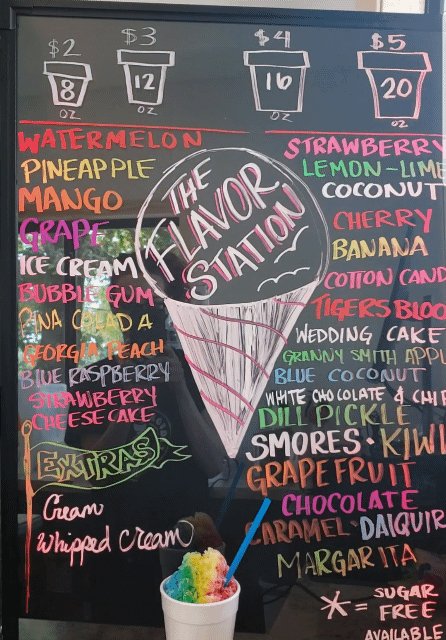 $2 $3 $4 $5
8 12 16 20
OZ OZ OZ OZ
THE
FLAVOR
STATION
WATERMELON
PINEAPPLE
MANGO
GRAPE
ICE CREAM
BUBBLE GUM
PINA COLADA
GEORGIA PEACH
BLUE RASPBERRY
STRAWBERRY
CHEESECAKE
EXTRAS
Cream
Whipped Cream
STRAWBERRY
LEMON-LIME
COCONUT
CHERRY
BANANA
COTTON CAND
TIGERS BLOO
WEDDING CAKE
GRANNY SMITH APPL
BLUE COCONUT
WHITE CHOCOLATE & CHIP
DILL PICKLE
SMORES · KIWI
GRAPEFRUIT
CHOCOLATE
CARAMEL · DAIQUIR
MARGARITA
* = SUGAR
FREE
AVAILABLE